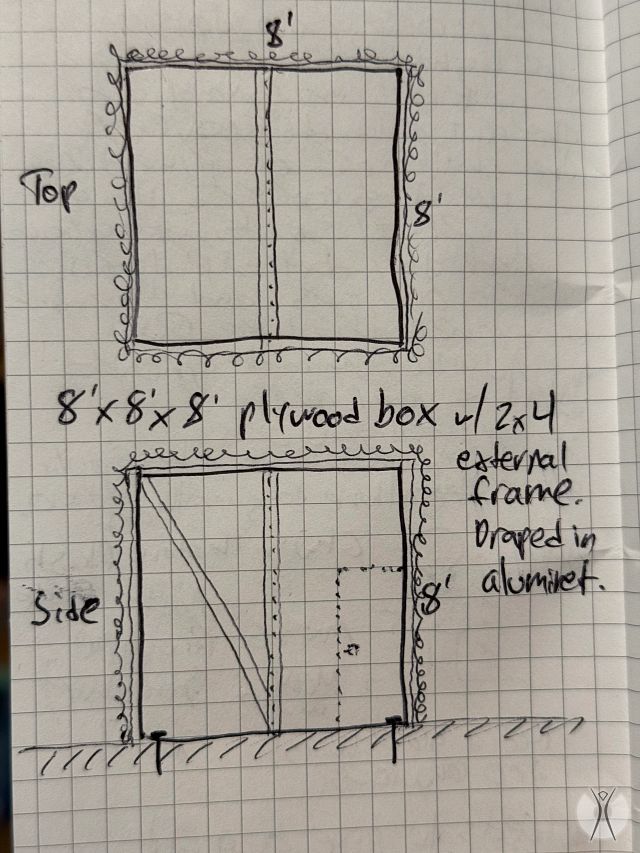 8'
Top
8'
8'x8'x8' plywood box w/ 2x4
external
frame.
Draped in
aluminet.
Side
8'